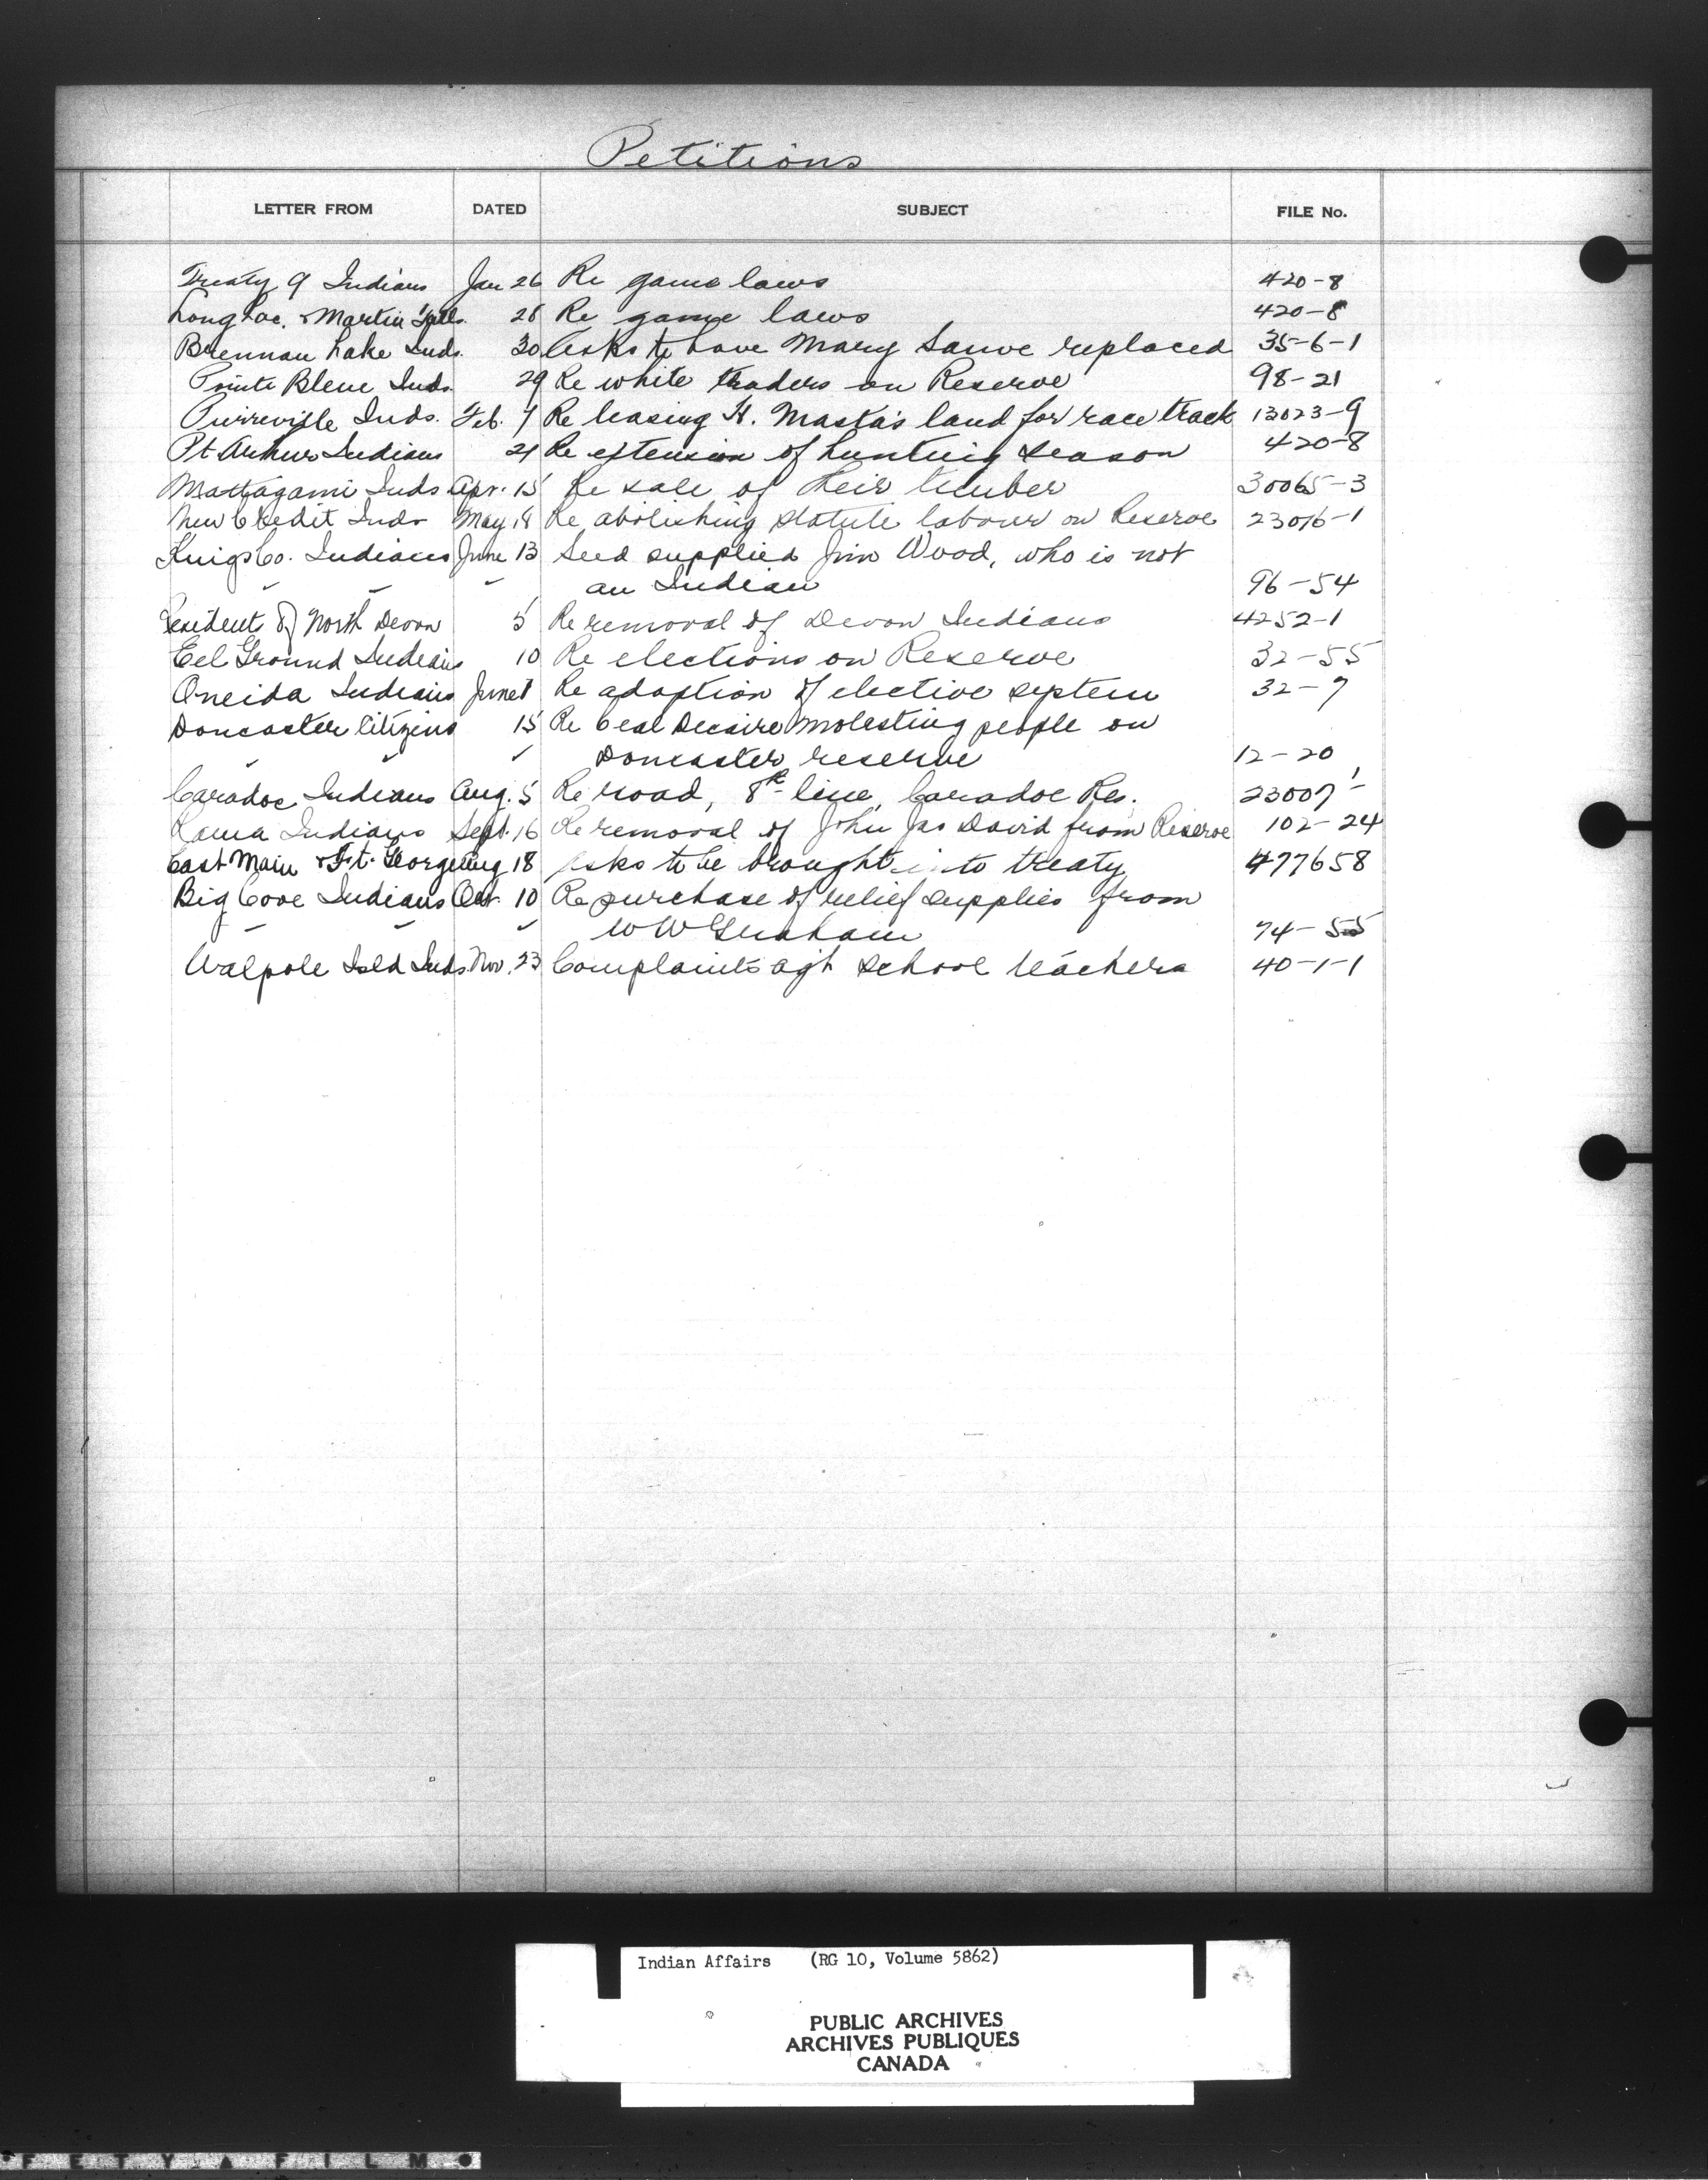 Petitions
LETTER FROM DATED SUBJECT FILE No.
Treaty 9 Indians Jan 26 Re game laws 420-8
Long Lac. & Martin Falls. 28 Re game laws 420-8
Brennan Lake Inds. 30 Asks to have Mary Sauve replaced 35-6-1
Pointe Bleue Inds. 29 Re white traders on Reserve 98-21
Pierreville Inds. Feb. 7 Re leasing H. Masta's land for race track 13023-9
Pt Arthur Indians 21 Re extension of hunting season 420-8
Mattagami Inds Apr. 15 Re sale of their timber 30065-3
New Credit Inds May 18 Re abolishing statute labour on Reserve 23016-1
Kings Co. Indians June 13 Seed supplied Jim Wood, who is not
" " " an Indian 96-54
Resident of North Devon 5 Re removal of Devon Indians 4252-1
Eel Ground Indians 10 Re elections on Reserve 32-55
Oneida Indians June 1 Re adoption of elective system 32-7
Doncaster Citizens 15 Re Ceal Decaire molesting people on
" " " Doncaster reserve 12-20
Caradoc Indians Aug. 5 Re road, 8th line, Caradoc Res. 23007-1
Rama Indians Sept. 16 Re removal of John Jas David from Reserve 102-24
East Main & Ft. George Aug 18 Asks to be brought into treaty 477658
Big Cove Indians Oct. 10 Re purchase of relief supplies from
" " " W W Graham 74-55
Walpole Isld Inds. Nov. 23 Complaints agt school teachers 40-1-1
Indian Affairs (RG 10, Volume 5862)
PUBLIC ARCHIVES
ARCHIVES PUBLIQUES
CANADA
FETY A FILM